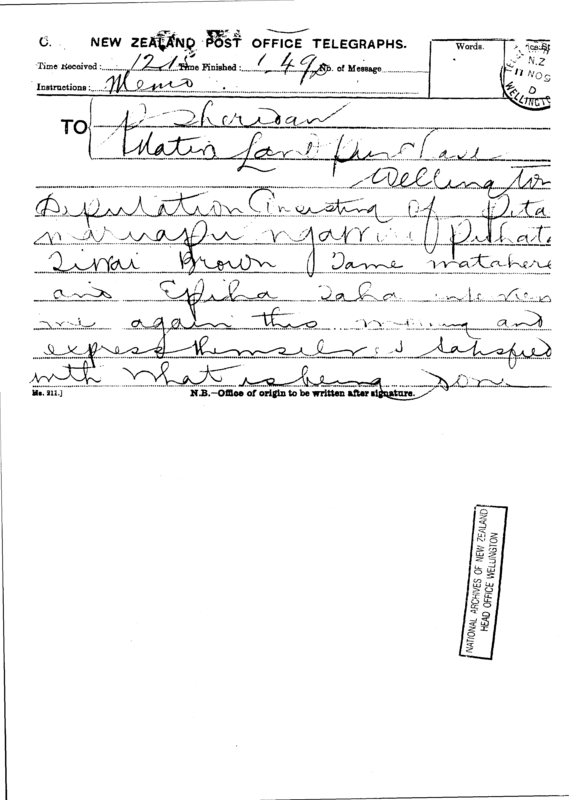 C. NEW ZEALAND POST OFFICE TELEGRAPHS.
Words.
Time Received: 1215 Time Finished: 1.49 No. of Message
N.Z
11 NO 9
D
WELLINGTO
Instructions: Memo
TO P Sheridan
Native Land Purchase
Wellington
Deputation Consisting of Pita
maruapu ngawini Puhata
Brown Tame matahere
and Epiha Taha interview
me again this morning and
express themselves satisfied
with what is being done
Ms. 211.] N.B.—Office of origin to be written after signature.
NATIONAL ARCHIVES OF NEW ZEALAND
HEAD OFFICE WELLINGTON